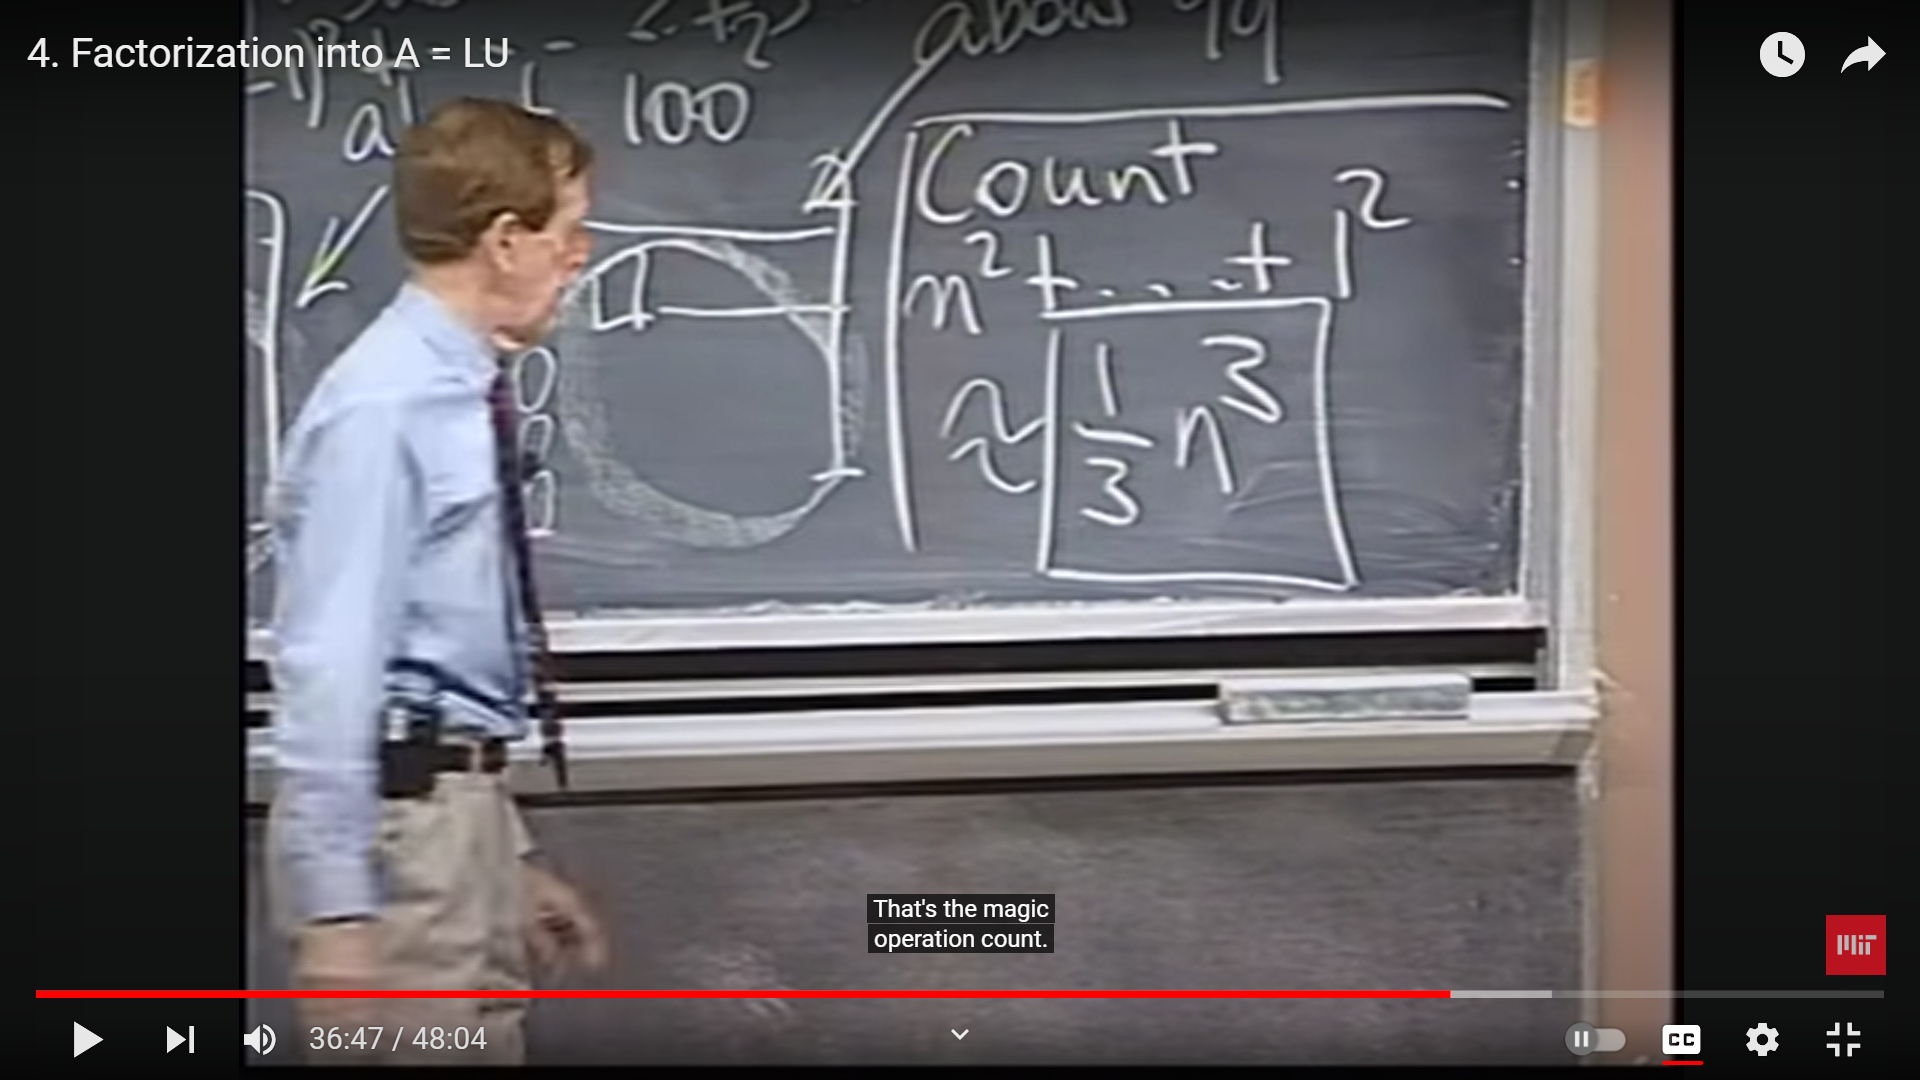 4. Factorization into A = LU
100
about 99
a
2
Count
n² + ... + 1²
≈ 1/3 n³
0
0
0
That's the magic
operation count.
MIT
36:47 / 48:04
CC